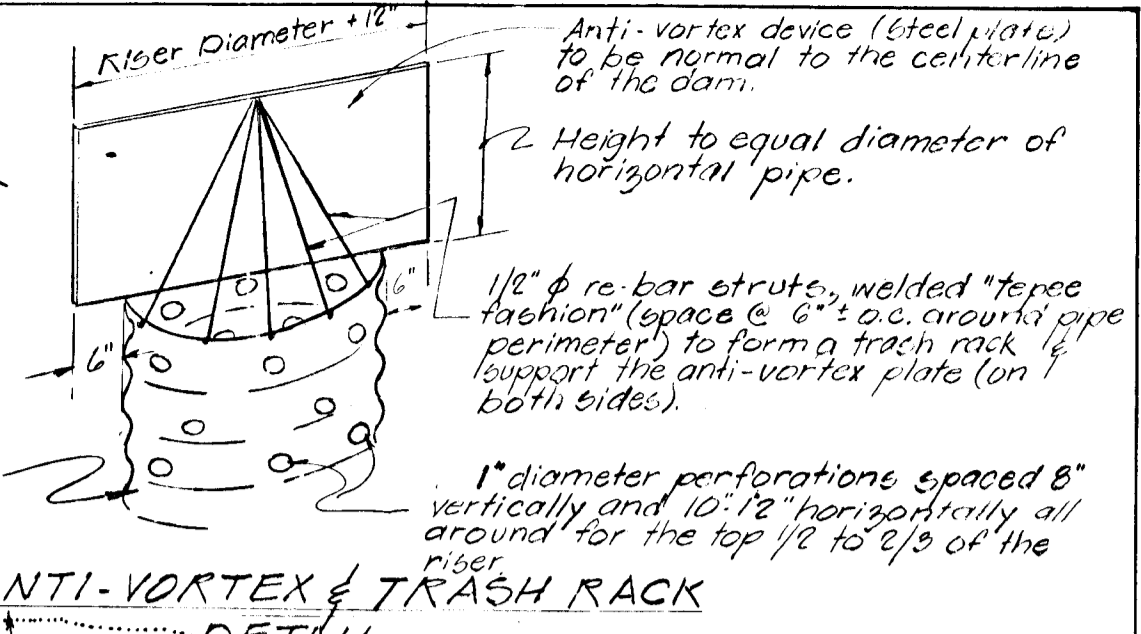 Riser Diameter + 12"
Anti-vortex device (Steel plate)
to be normal to the centerline
of the dam.
Height to equal diameter of
horizontal pipe.
6"
6"
1/2" φ re-bar struts, welded "tepee
fashion" (space @ 6" ± o.c. around pipe
perimeter) to form a trash rack &
support the anti-vortex plate (on
both sides).
1" diameter perforations spaced 8"
vertically and 10"-12" horizontally all
around for the top 1/2 to 2/3 of the
riser
NTI-VORTEX & TRASH RACK